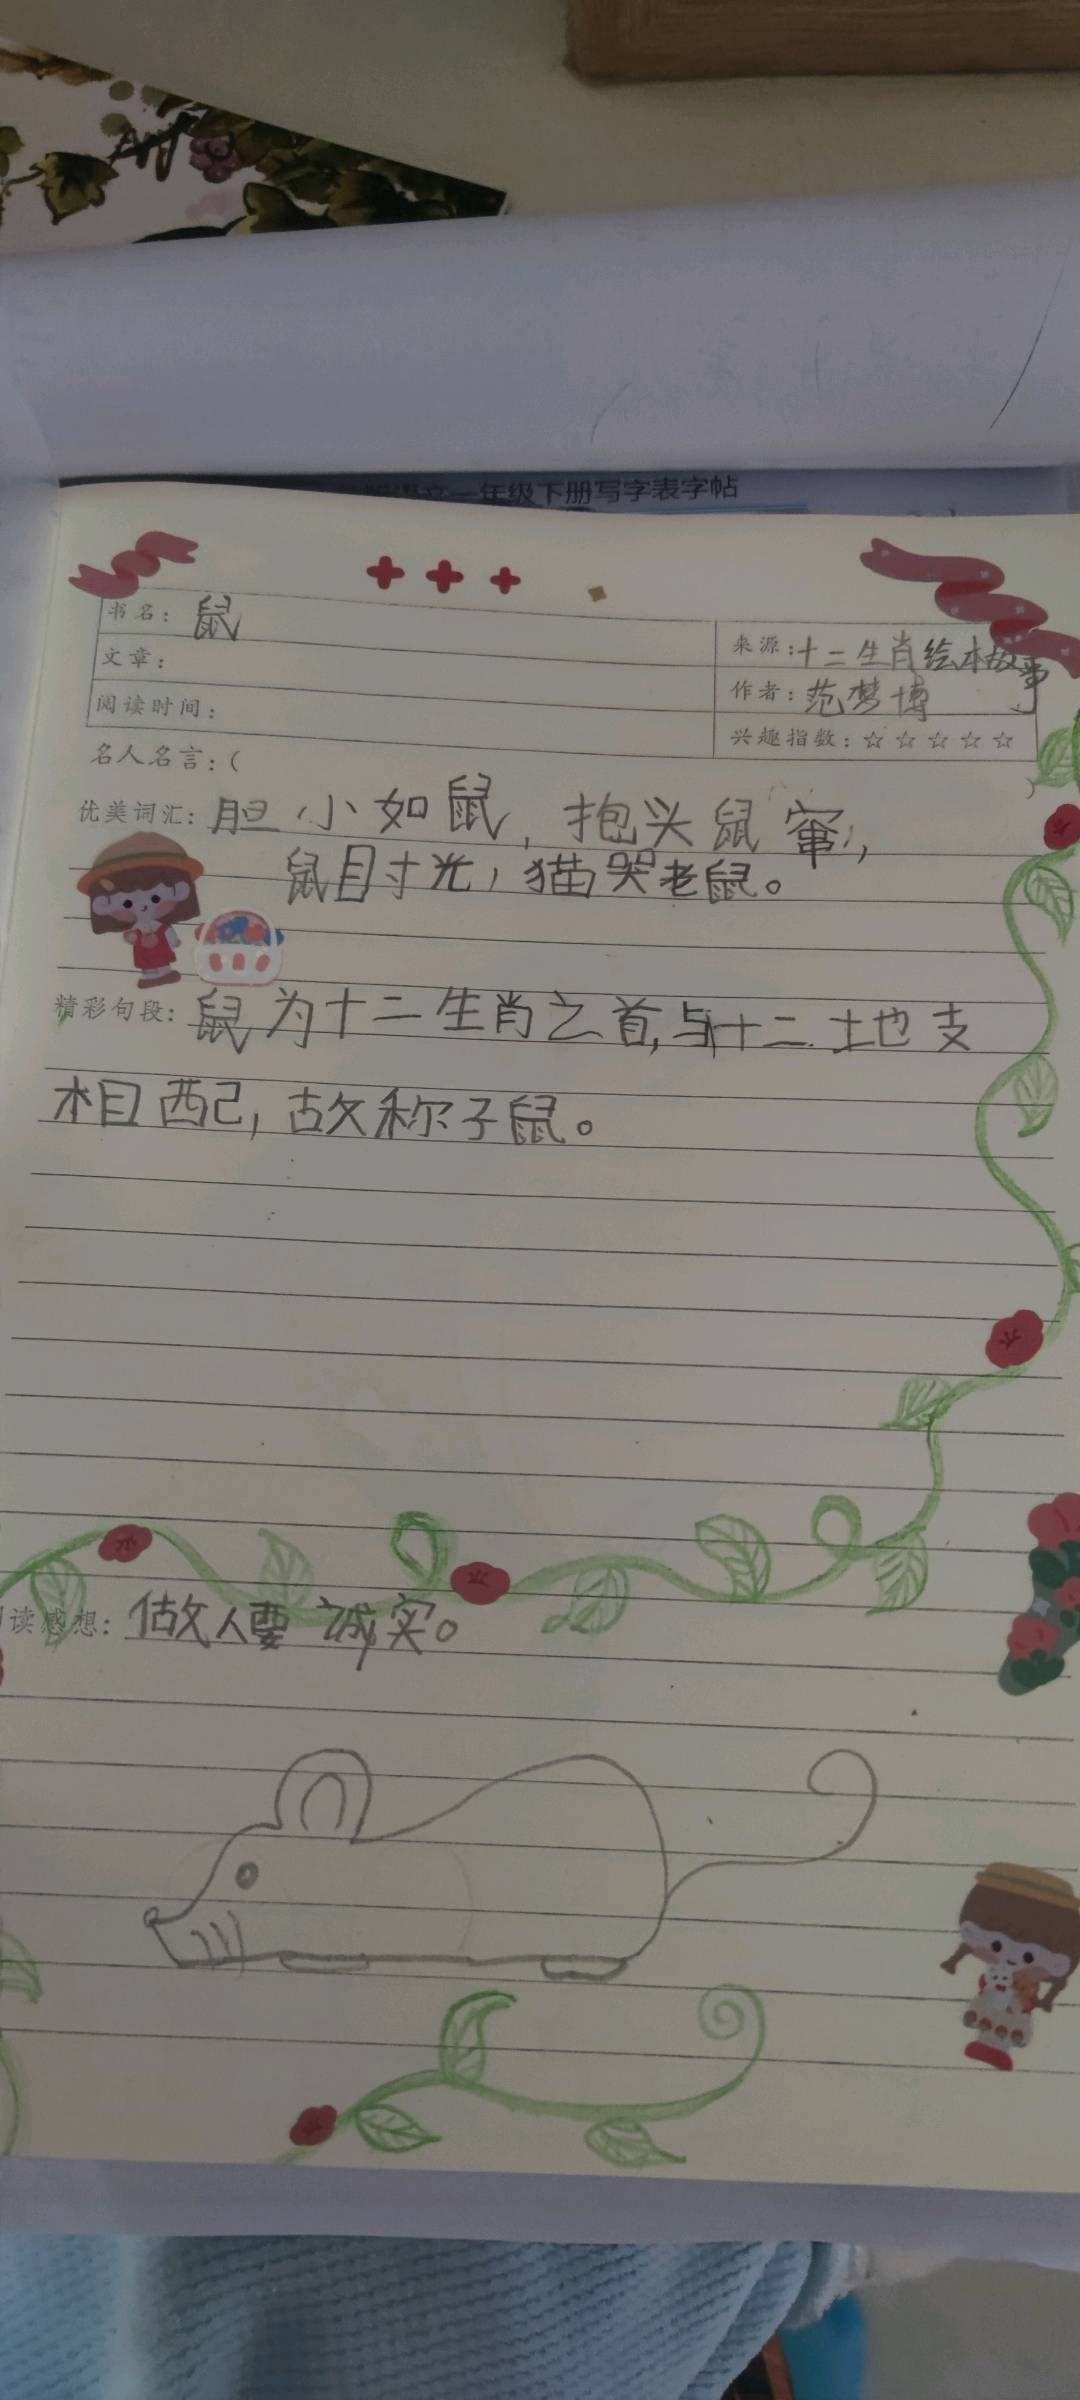 语文一年级下册写字表字帖
书名：鼠
来源：十二生肖绘本故事
文章：
作者：范梦博
阅读时间：
兴趣指数：☆☆☆☆☆
名人名言：（
）
优美词汇：胆小如鼠，抱头鼠窜，
鼠目寸光，猫哭老鼠。
精彩句段：鼠为十二生肖之首，与十二地支
相配，故称子鼠。
读感想：做人要诚实。